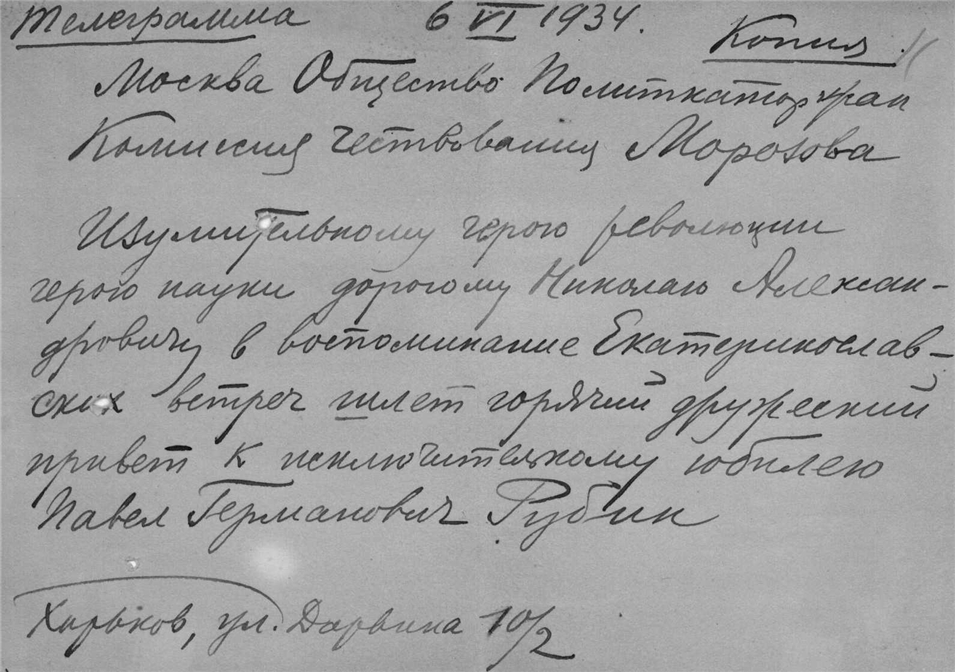 Телеграмма 6 VI 1934.
Копия.
Москва Общество Политкаторжан
Комиссия чествования Морозова
Изумительному герою революции
герою науки дорогому Николаю Алексан-
дровичу в воспоминание Екатеринослав-
ских встреч шлет горячий дружеский
привет к исключительному юбилею
Павел Германович Рубин
Харьков, ул. Дарвина 10/2